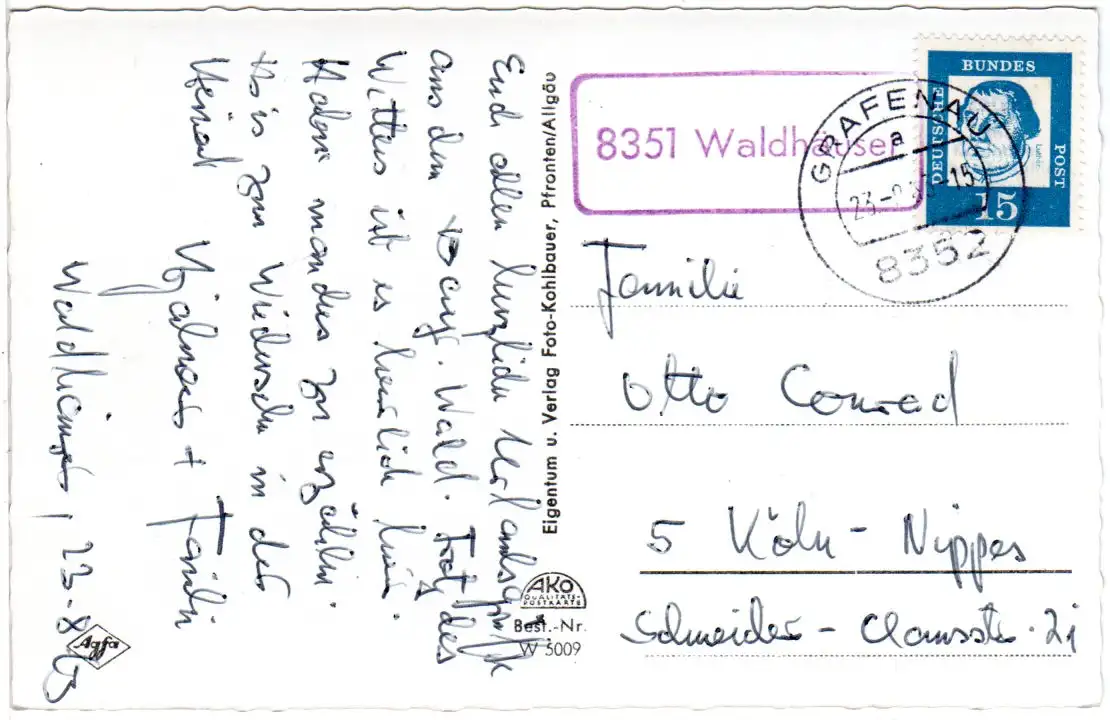 Euch allen herzliche Urlaubsgrüße
aus dem bayr. Wald. Trotz des
Wetters ist es herrlich hier.
Haben manches zu erzählen.
Bis zum Wiedersehn in der
Heimat
Hjalmar + Familie
Waldhäuser, 23.8.63
Eigentum u. Verlag Foto-Kohlbauer, Pfronten/Allgäu
AKO
QUALITÄTS-
POSTKARTE
Best.-Nr.
W 5009
Agfa
8351 Waldhäuser
GRAFENAU
a
23.-8.63-15
8352
DEUTSCHE
BUNDES
POST
Luther
15
Familie
Otto Conrad
5 Köln - Nippes
Schneider - Claussstr. 21